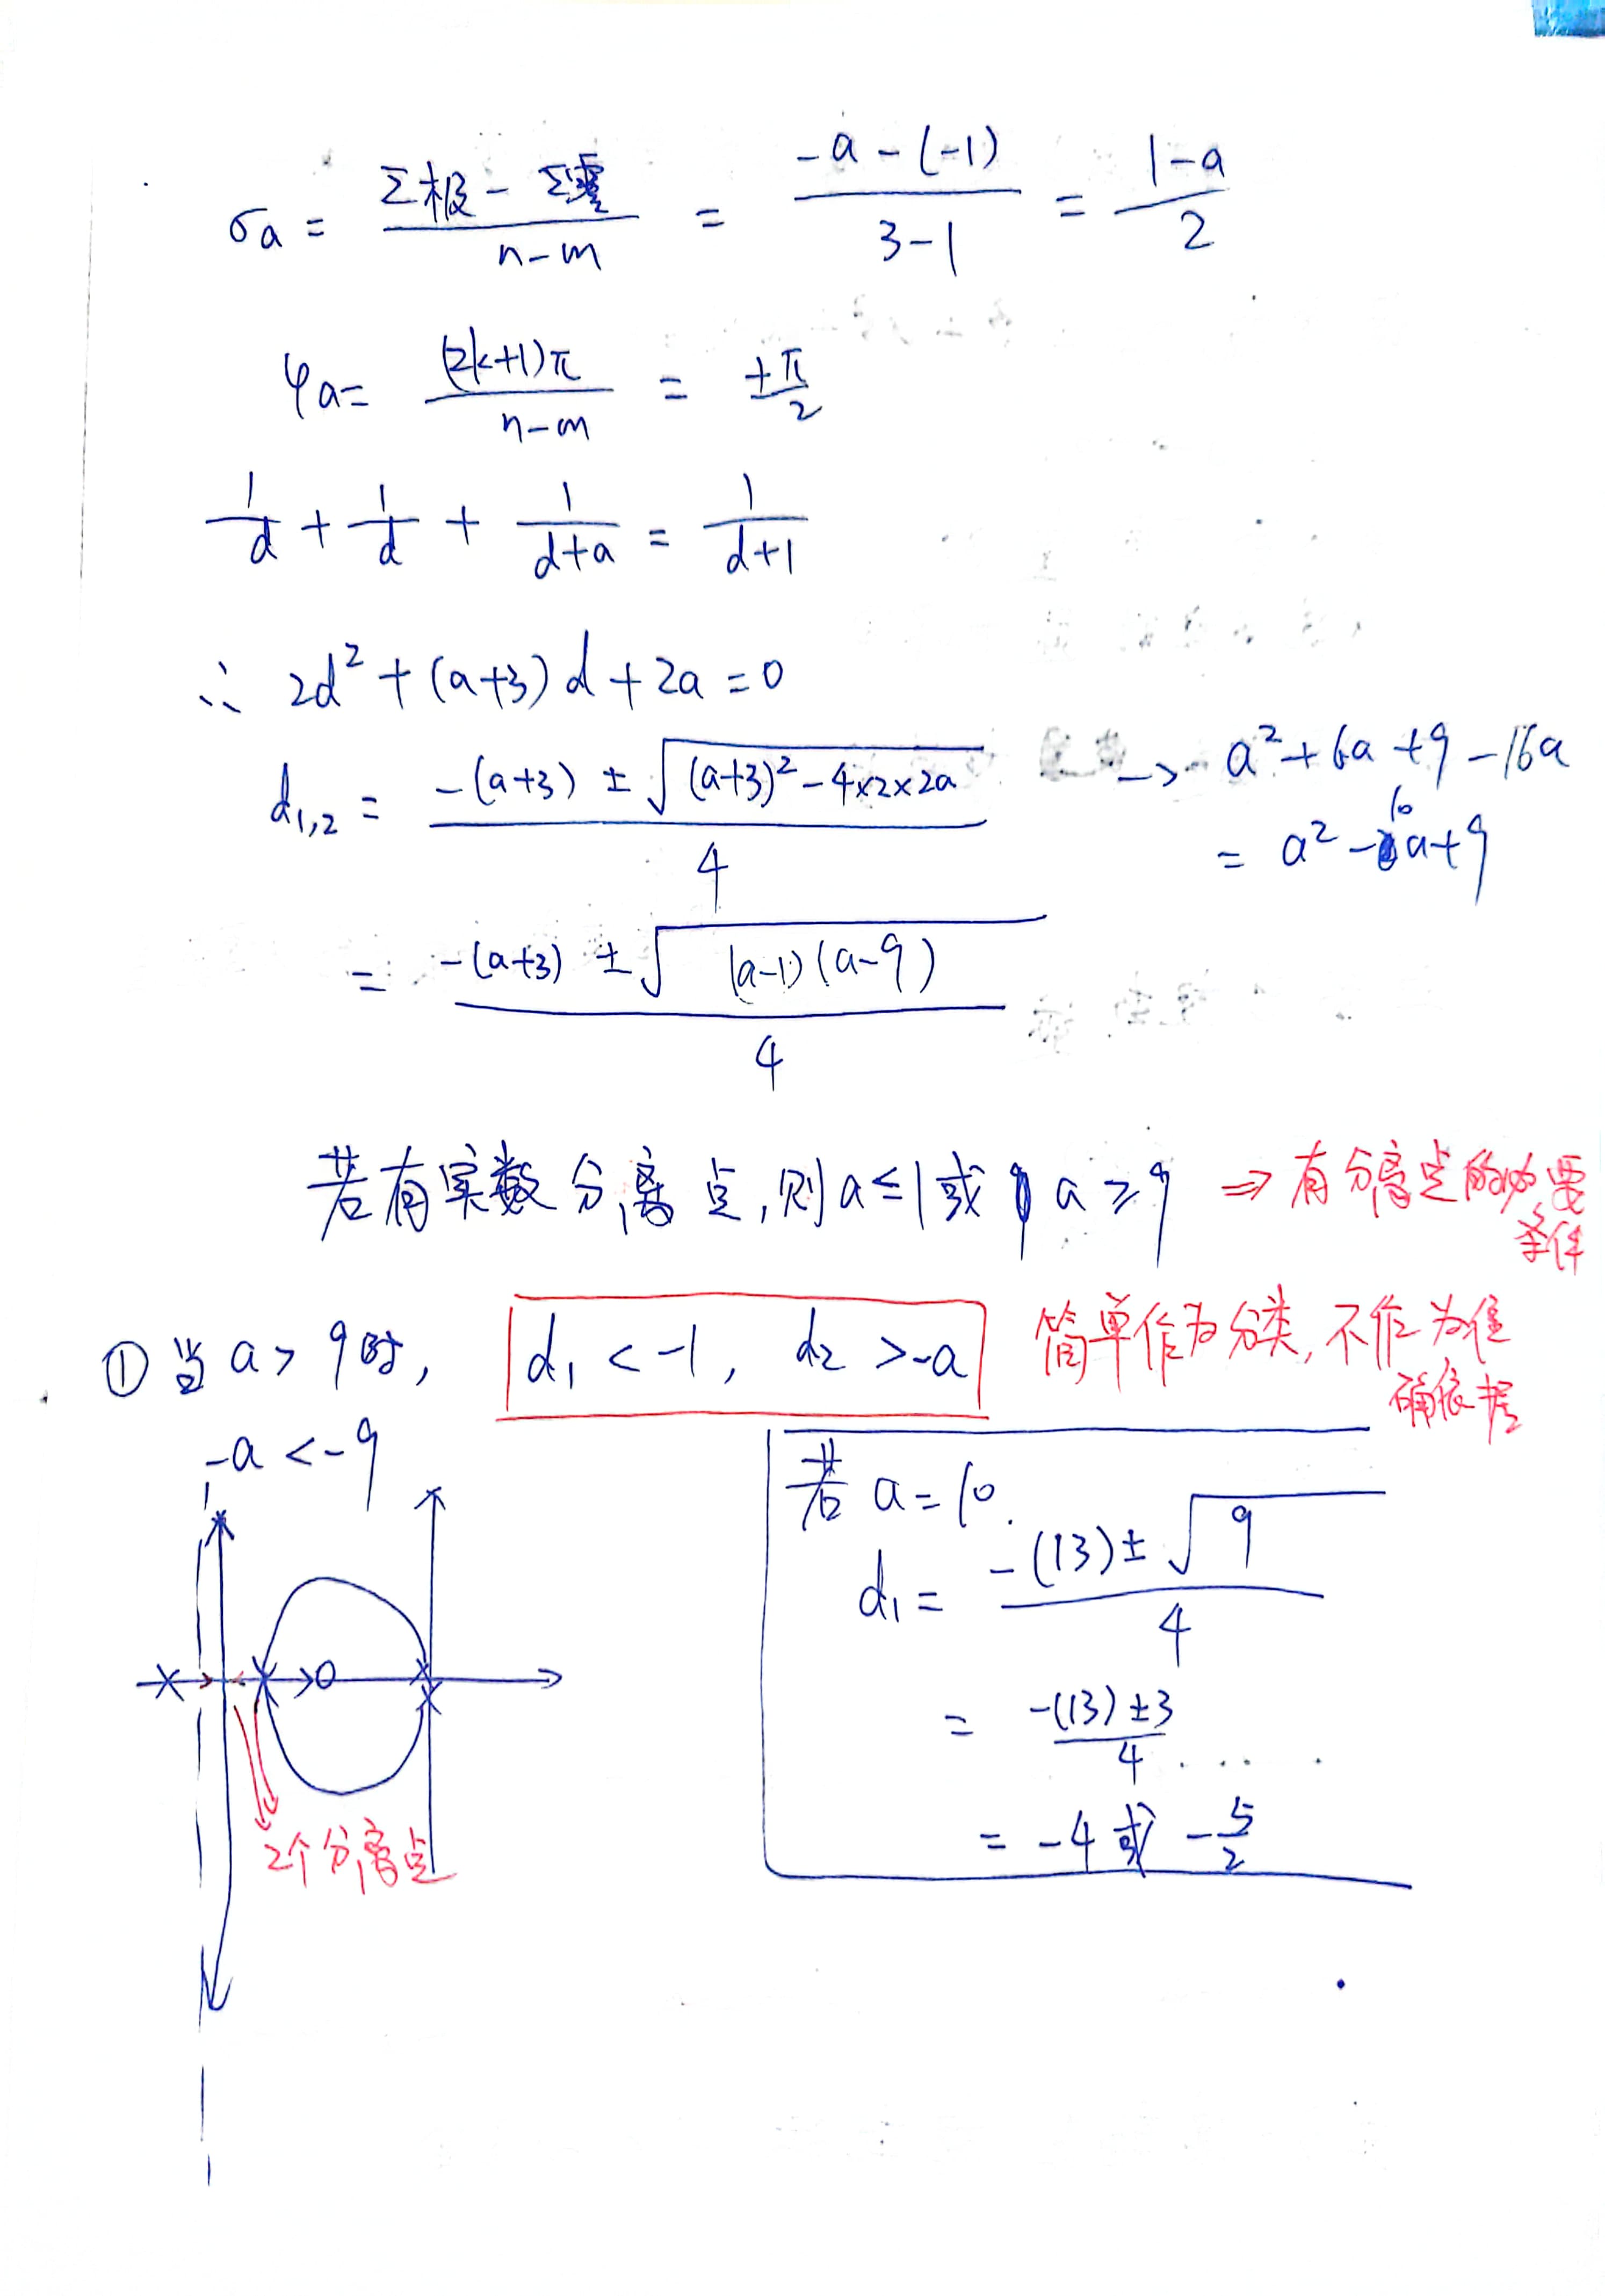 σa = (Σ极 - Σ零)/(n-m) = (-a-(-1))/(3-1) = (1-a)/2
φa = (2k+1)π/(n-m) = ±π/2
1/d + 1/d + 1/(d+a) = 1/(d+1)
∴ 2d² + (a+3)d + 2a = 0
d1,2 = (-(a+3) ± √((a+3)² - 4×2×2a))/4 → a² + 6a + 9 - 16a
= a² - 10a + 9
= (-(a+3) ± √((a-1)(a-9)))/4
若有实数分离点,则 a ≤ 1 或 a ≥ 9 ⇒ 有分离点的必要
条件
① 当 a > 9 时, d1 < -1, d2 > -a 简单作为分类,不作为准
确依据
-a < -9
若 a = 10.
d1 = (-(13) ± √9)/4
= (-(13) ± 3)/4
= -4 或 -5/2
2个分离点